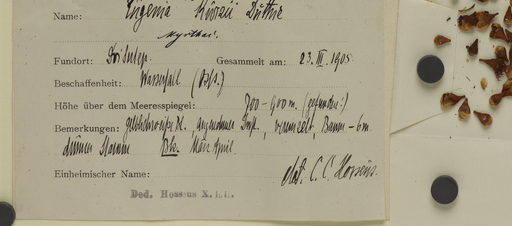 Name: Eugenia Kurzii Duthie
Myrthac.
Fundort: Doi Sutep. Gesammelt am: 23. III. 1905
Beschaffenheit: Wasserfall
Höhe über dem Meeresspiegel: 700-900 m. (gefunden:)
Bemerkungen: gelblichweiße Bl., angenehmer Duft, vereinzelt, Baum - 6m.
dünner Stamm März April
Einheimischer Name: det. C. C. Hosseus.
Ded. Hosseus X.